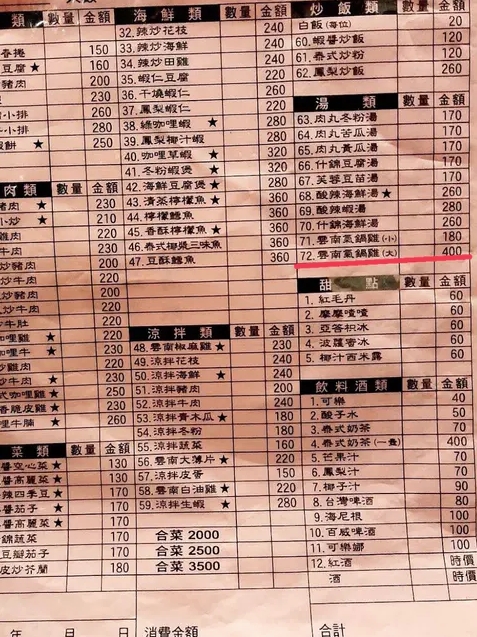 類 數量 金額
香捲 150
豆腐★ 160
豬肉 200
230
小排 260
小排 280
蝦餅★ 250
肉類 數量 金額
豬肉★ 230
小炒★ 210
雞肉 220
牛肉 230
炒豬肉 200
炒牛肉 220
牛肚 220
咖哩雞★ 230
咖哩牛★
炒牛肉★
式咖哩雞★
香脆皮雞★
哩牛腩★ 260
菜類 數量 金額
醬空心菜★ 130
醬高麗菜★ 130
辣四季豆★ 170
醬茄子★ 170
醬高麗菜★ 170
錦蔬菜 170
豆瓣茄子 170
皮炒芥蘭 180
年 月 日
海鮮類 數量 金額
32.辣炒花枝 240
33.辣炒海鮮 240
34.辣炒田雞 240
35.蝦仁豆腐 200
36.干燒蝦仁 240
37.鳳梨蝦仁 240
38.綠咖哩蝦★ 280
39.鳳梨椰汁蝦 280
40.咖哩草蝦★ 320
41.冬粉蝦煲★ 320
42.海鮮豆腐煲★ 280
43.清蒸檸檬魚★ 360
44.檸檬鱈魚
45.香酥檸檬魚★
46.泰式椰漿三味魚
47.豆酥鱈魚 360
涼拌類 數量 金額
48.雲南椒麻雞★ 230
49.涼拌花枝 240
50.涼拌海鮮★ 240
51.涼拌豬肉 200
52.涼拌牛肉 240
53.涼拌青木瓜★ 200
54.涼拌冬粉 180
55.涼拌蔬菜 160
56.雲南大薄片★ 220
57.涼拌皮蛋 150
58.雲南白油雞★ 230
59.涼拌生蝦★ 280
合菜 2000
合菜 2500
合菜 3500
消費金額
炒飯類 數量 金額
白飯(每位) 20
60.蝦醬炒飯 120
61.泰式炒粉 120
62.鳳梨炒飯 260
湯類 數量 金額
63.肉丸冬粉湯 170
64.肉丸苦瓜湯 170
65.肉丸黃瓜湯 170
66.什錦豆腐湯 170
67.芙蓉豆苗湯 170
68.酸辣海鮮湯★ 260
69.酸辣蝦湯 280
70.什錦海鮮湯 260
71.雲南氣鍋雞(小) 180
72.雲南氣鍋雞(大) 400
甜點 數量 金額
1.紅毛丹 60
2.摩摩喳喳 60
3.亞答枳冰 60
4.波蘿蜜冰 60
5.椰汁西米露 60
飲料酒類 數量 金額
1.可樂 40
2.酸子水 50
3.泰式奶茶 70
4.泰式奶茶(一壺) 400
5.芒果汁 70
6.鳳梨汁 70
7.椰子汁 90
8.台灣啤酒 80
9.海尼根 100
10.百威啤酒 100
11.可樂娜 100
12.紅酒 時價
酒 時價
合計